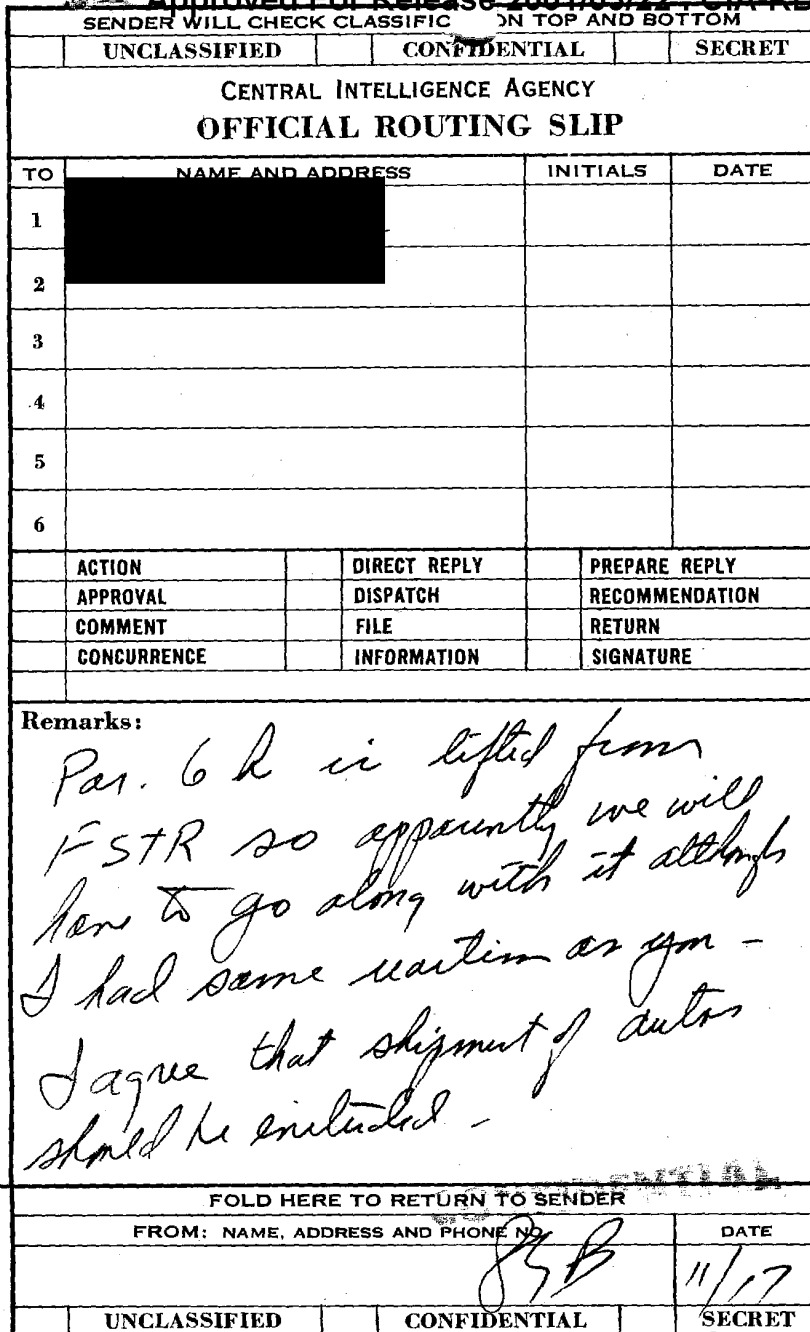 Approved For Release 2001/05/22 : CIA-RD
SENDER WILL CHECK CLASSIFIC ON TOP AND BOTTOM
UNCLASSIFIED CONFIDENTIAL SECRET
CENTRAL INTELLIGENCE AGENCY
OFFICIAL ROUTING SLIP
TO NAME AND ADDRESS INITIALS DATE
1
2
3
4
5
6
ACTION DIRECT REPLY PREPARE REPLY
APPROVAL DISPATCH RECOMMENDATION
COMMENT FILE RETURN
CONCURRENCE INFORMATION SIGNATURE
Remarks:
Par. 6 h is lifted from
FSTR so apparently we will
have to go along with it although
I had same reaction as you -
I agree that shipment of autos
should be included -
CONFIDENTIAL
FOLD HERE TO RETURN TO SENDER
FROM: NAME, ADDRESS AND PHONE NO. DATE
11/17
UNCLASSIFIED CONFIDENTIAL SECRET